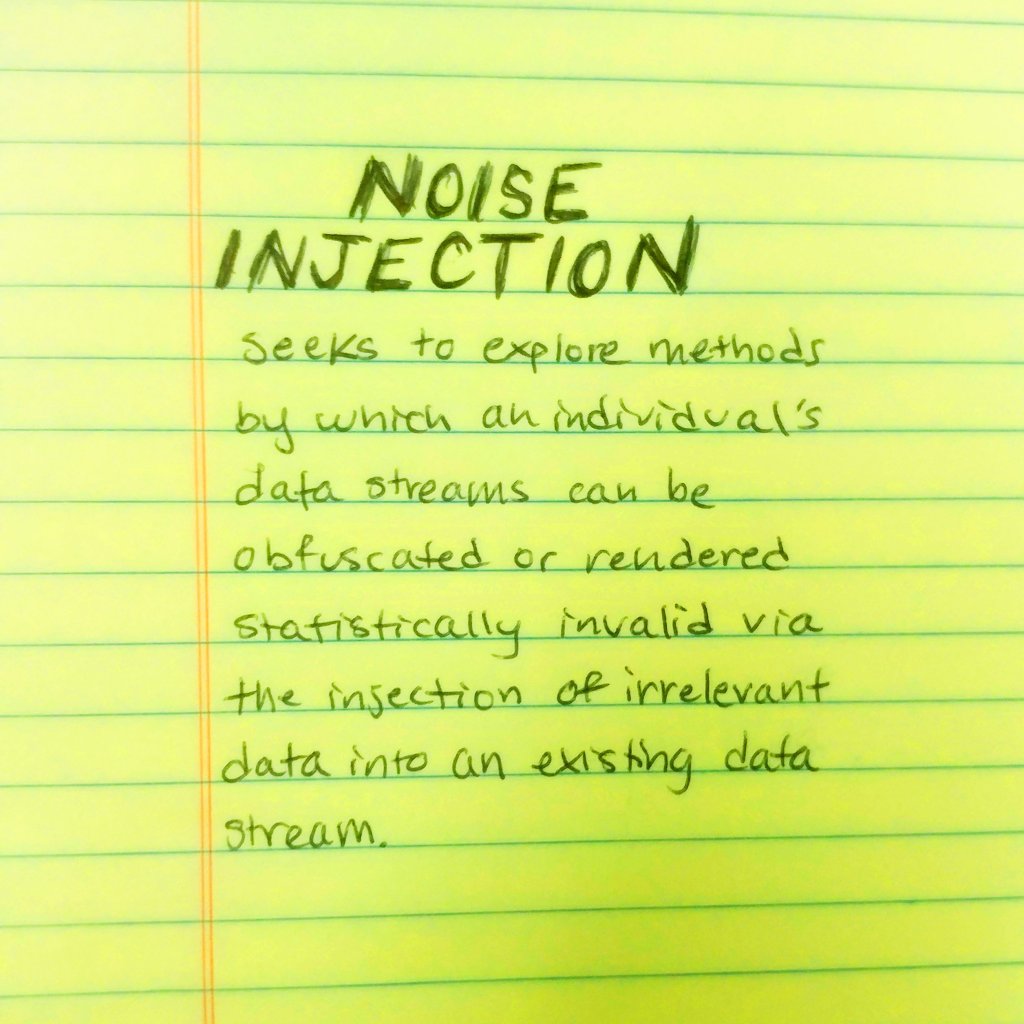 NOISE
INJECTION
seeks to explore methods
by which an individual's
data streams can be
obfuscated or rendered
statistically invalid via
the injection of irrelevant
data into an existing data
stream.